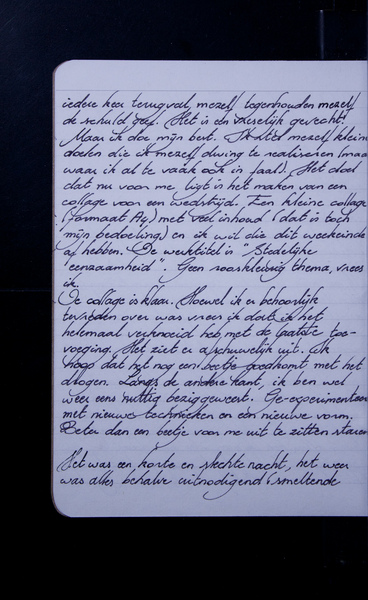 iedere keer terugval, mezelf tegenhouden mezelf
de schuld geef. Het is een vreselijk gevecht!
Maar ik doe mijn best. Ik stel mezelf kleine
doelen die ik mezelf dwing te realiseren (maar
waar ik al te vaak ook in faal). Het doel
dat nu voor me ligt is het maken van een
collage voor een wedstrijd. Een kleine collage
(formaat A4) met veel inhoud (dat is toch
mijn bedoeling) en ik wil die dit weekeinde
af hebben. De werktitel is "Stedelijke
eenzaamheid". Geen rooskleurig thema, vrees
ik.
De collage is klaar. Hoewel ik er behoorlijk
tevreden over was vrees ik dat ik het
helemaal verknoeid heb met de laatste toe-
voeging. Het ziet er afschuwelijk uit. Ik
hoop dat het nog een beetje goedkomt met het
drogen. Langs de andere kant, ik ben wel
weer eens nuttig bezig geweest. Ge-experimenteerd
met nieuwe technieken en een nieuwe vorm.
Beter dan een beetje voor me uit te zitten staren
Het was een korte en slechte nacht, het weer
was alles behalve uitnodigend (smeltende